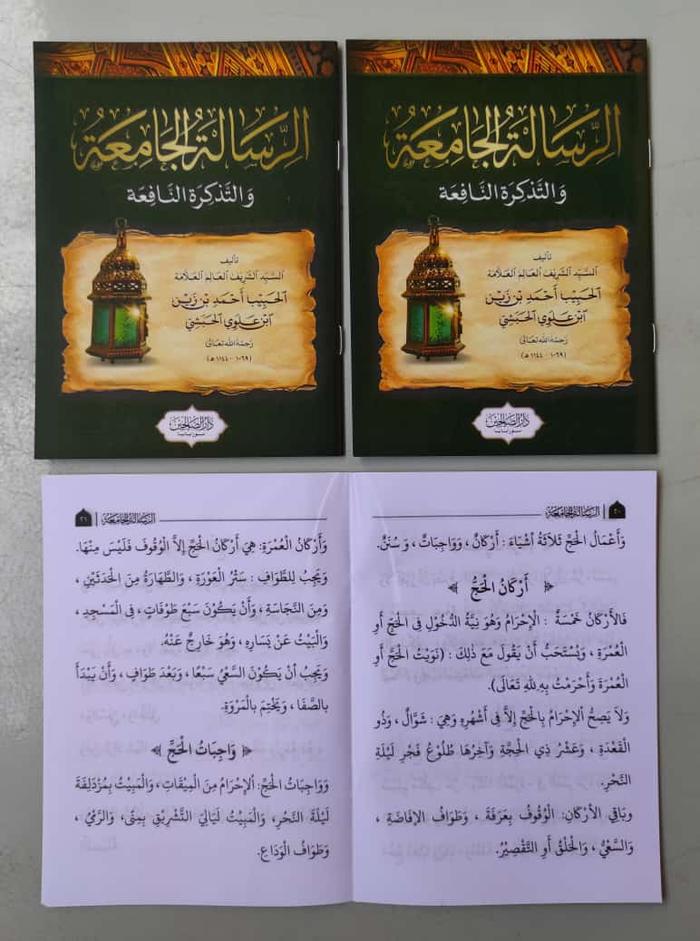 الرِّسَالَةُ الجَامِعَةُ
وَالتَّذْكِرَةُ النَّافِعَة
تأليف
السَّيِّد الشَّرِيف العَالِم العَلَّامَة
الحَبِيْبِ أَحْمَد بِنْ زَيْن
ابْنِ عَلَوِي الحَبَشِيّ
رَحِمَهُ اللهُ تَعَالَى
(١٠٦٩ - ١١٤٤ هـ)
دَارُ الصَّالِحِيْن
سورابايا
الرِّسَالَةُ الجَامِعَةُ
وَالتَّذْكِرَةُ النَّافِعَة
تأليف
السَّيِّد الشَّرِيف العَالِم العَلَّامَة
الحَبِيْبِ أَحْمَد بِنْ زَيْن
ابْنِ عَلَوِي الحَبَشِيّ
رَحِمَهُ اللهُ تَعَالَى
(١٠٦٩ - ١١٤٤ هـ)
دَارُ الصَّالِحِيْن
سورابايا
٢٠ الرِّسَالَةُ الجَامِعَةُ
وَأَعْمَالُ الحَجِّ ثَلَاثَةُ أَشْيَاءَ : أَرْكَانٌ ، وَوَاجِبَاتٌ ، وَسُنَنٌ.
﴿ أَرْكَانُ الحَجِّ ﴾
فَالأَرْكَانُ خَمْسَةٌ : الإِحْرَامُ وَهُوَ نِيَّةُ الدُّخُوْلِ فِي الحَجِّ أَوِ
العُمْرَةِ ، وَيُسْتَحَبُّ أَنْ يَقُوْلَ مَعَ ذَلِكَ : (نَوَيْتُ الحَجَّ أَوِ
العُمْرَةَ وَأَحْرَمْتُ بِهِ لِلّٰهِ تَعَالَى).
وَلَا يَصِحُّ الإِحْرَامُ بِالحَجِّ إِلَّا فِي أَشْهُرِهِ وَهِيَ : شَوَّالٌ ، وَذُو
القَعْدَةِ ، وَعَشْرُ ذِي الحِجَّةِ وَآخِرُهَا طُلُوْعُ فَجْرِ لَيْلَةِ
النَّحْرِ.
وَبَاقِي الأَرْكَانِ: الوُقُوْفُ بِعَرَفَةَ ، وَطَوَافُ الإِفَاضَةِ ،
وَالسَّعْيُ ، وَالحَلْقُ أَوِ التَّقْصِيْرُ.
الرِّسَالَةُ الجَامِعَةُ ٢١
وَأَرْكَانُ العُمْرَةِ: هِيَ أَرْكَانُ الحَجِّ إِلَّا الوُقُوْفَ فَلَيْسَ مِنْهَا.
وَيَجِبُ لِلطَّوَافِ : سَتْرُ العَوْرَةِ ، وَالطَّهَارَةُ مِنَ الحَدَثَيْنِ ،
وَمِنَ النَّجَاسَةِ ، وَأَنْ يَكُوْنَ سَبْعَ طَوْفَاتٍ ، فِي المَسْجِدِ ،
وَالبَيْتُ عَنْ يَسَارِهِ ، وَهُوَ خَارِجٌ عَنْهُ.
وَيَجِبُ أَنْ يَكُوْنَ السَّعْيُ سَبْعًا ، وَبَعْدَ طَوَافٍ ، وَأَنْ يَبْدَأَ
بِالصَّفَا ، وَيَخْتِمَ بِالمَرْوَةِ.
﴿ وَاجِبَاتُ الحَجِّ ﴾
وَوَاجِبَاتُ الحَجِّ: الإِحْرَامُ مِنَ المِيْقَاتِ، وَالمَبِيْتُ بِمُزْدَلِفَةَ
لَيْلَةَ النَّحْرِ، وَالمَبِيْتُ لَيَالِيَ التَّشْرِيْقِ بِمِنًى، وَالرَّمْيُ ،
وَطَوَافُ الوَدَاعِ.